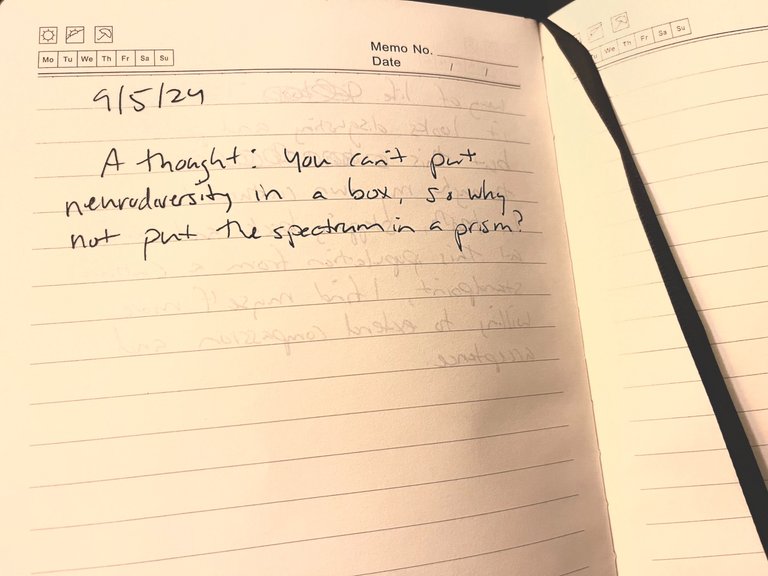 Mo Tu We Th Fr Sa Su
Memo No.
Date / /
9/5/24
A thought: You can't put
neurodiversity in a box, so why
not put the spectrum in a prism?
We Th Fr Sa Su